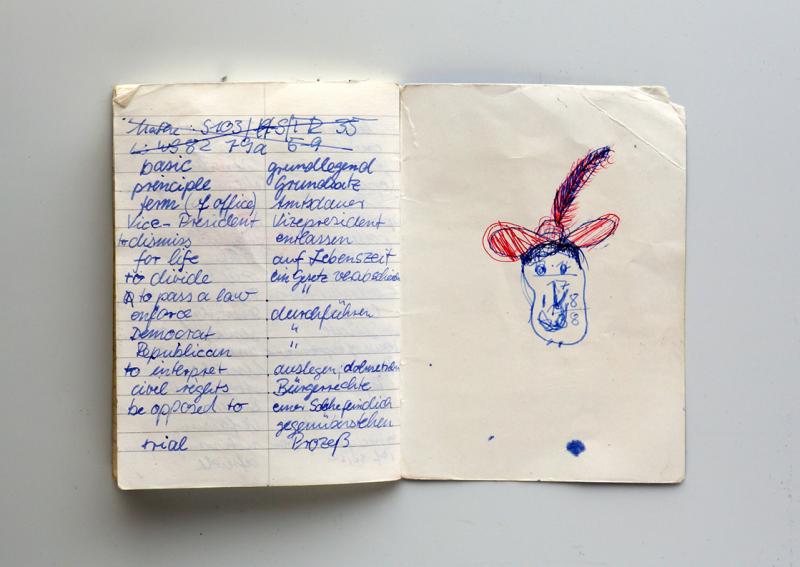 S103
basic grundlegend
principle Grundsatz
term (of office) Amtsdauer
Vice-President Vizepresident
to dismiss entlassen
for life auf Lebenszeit
to divide ein Gesetz
to pass a law "
enforce durchführen
Democrat "
Republican "
to interpret auslegen;
civil rights Bürgerrechte
be opposed to einer Sache feindlich
gegenüberstehen
trial Prozeß